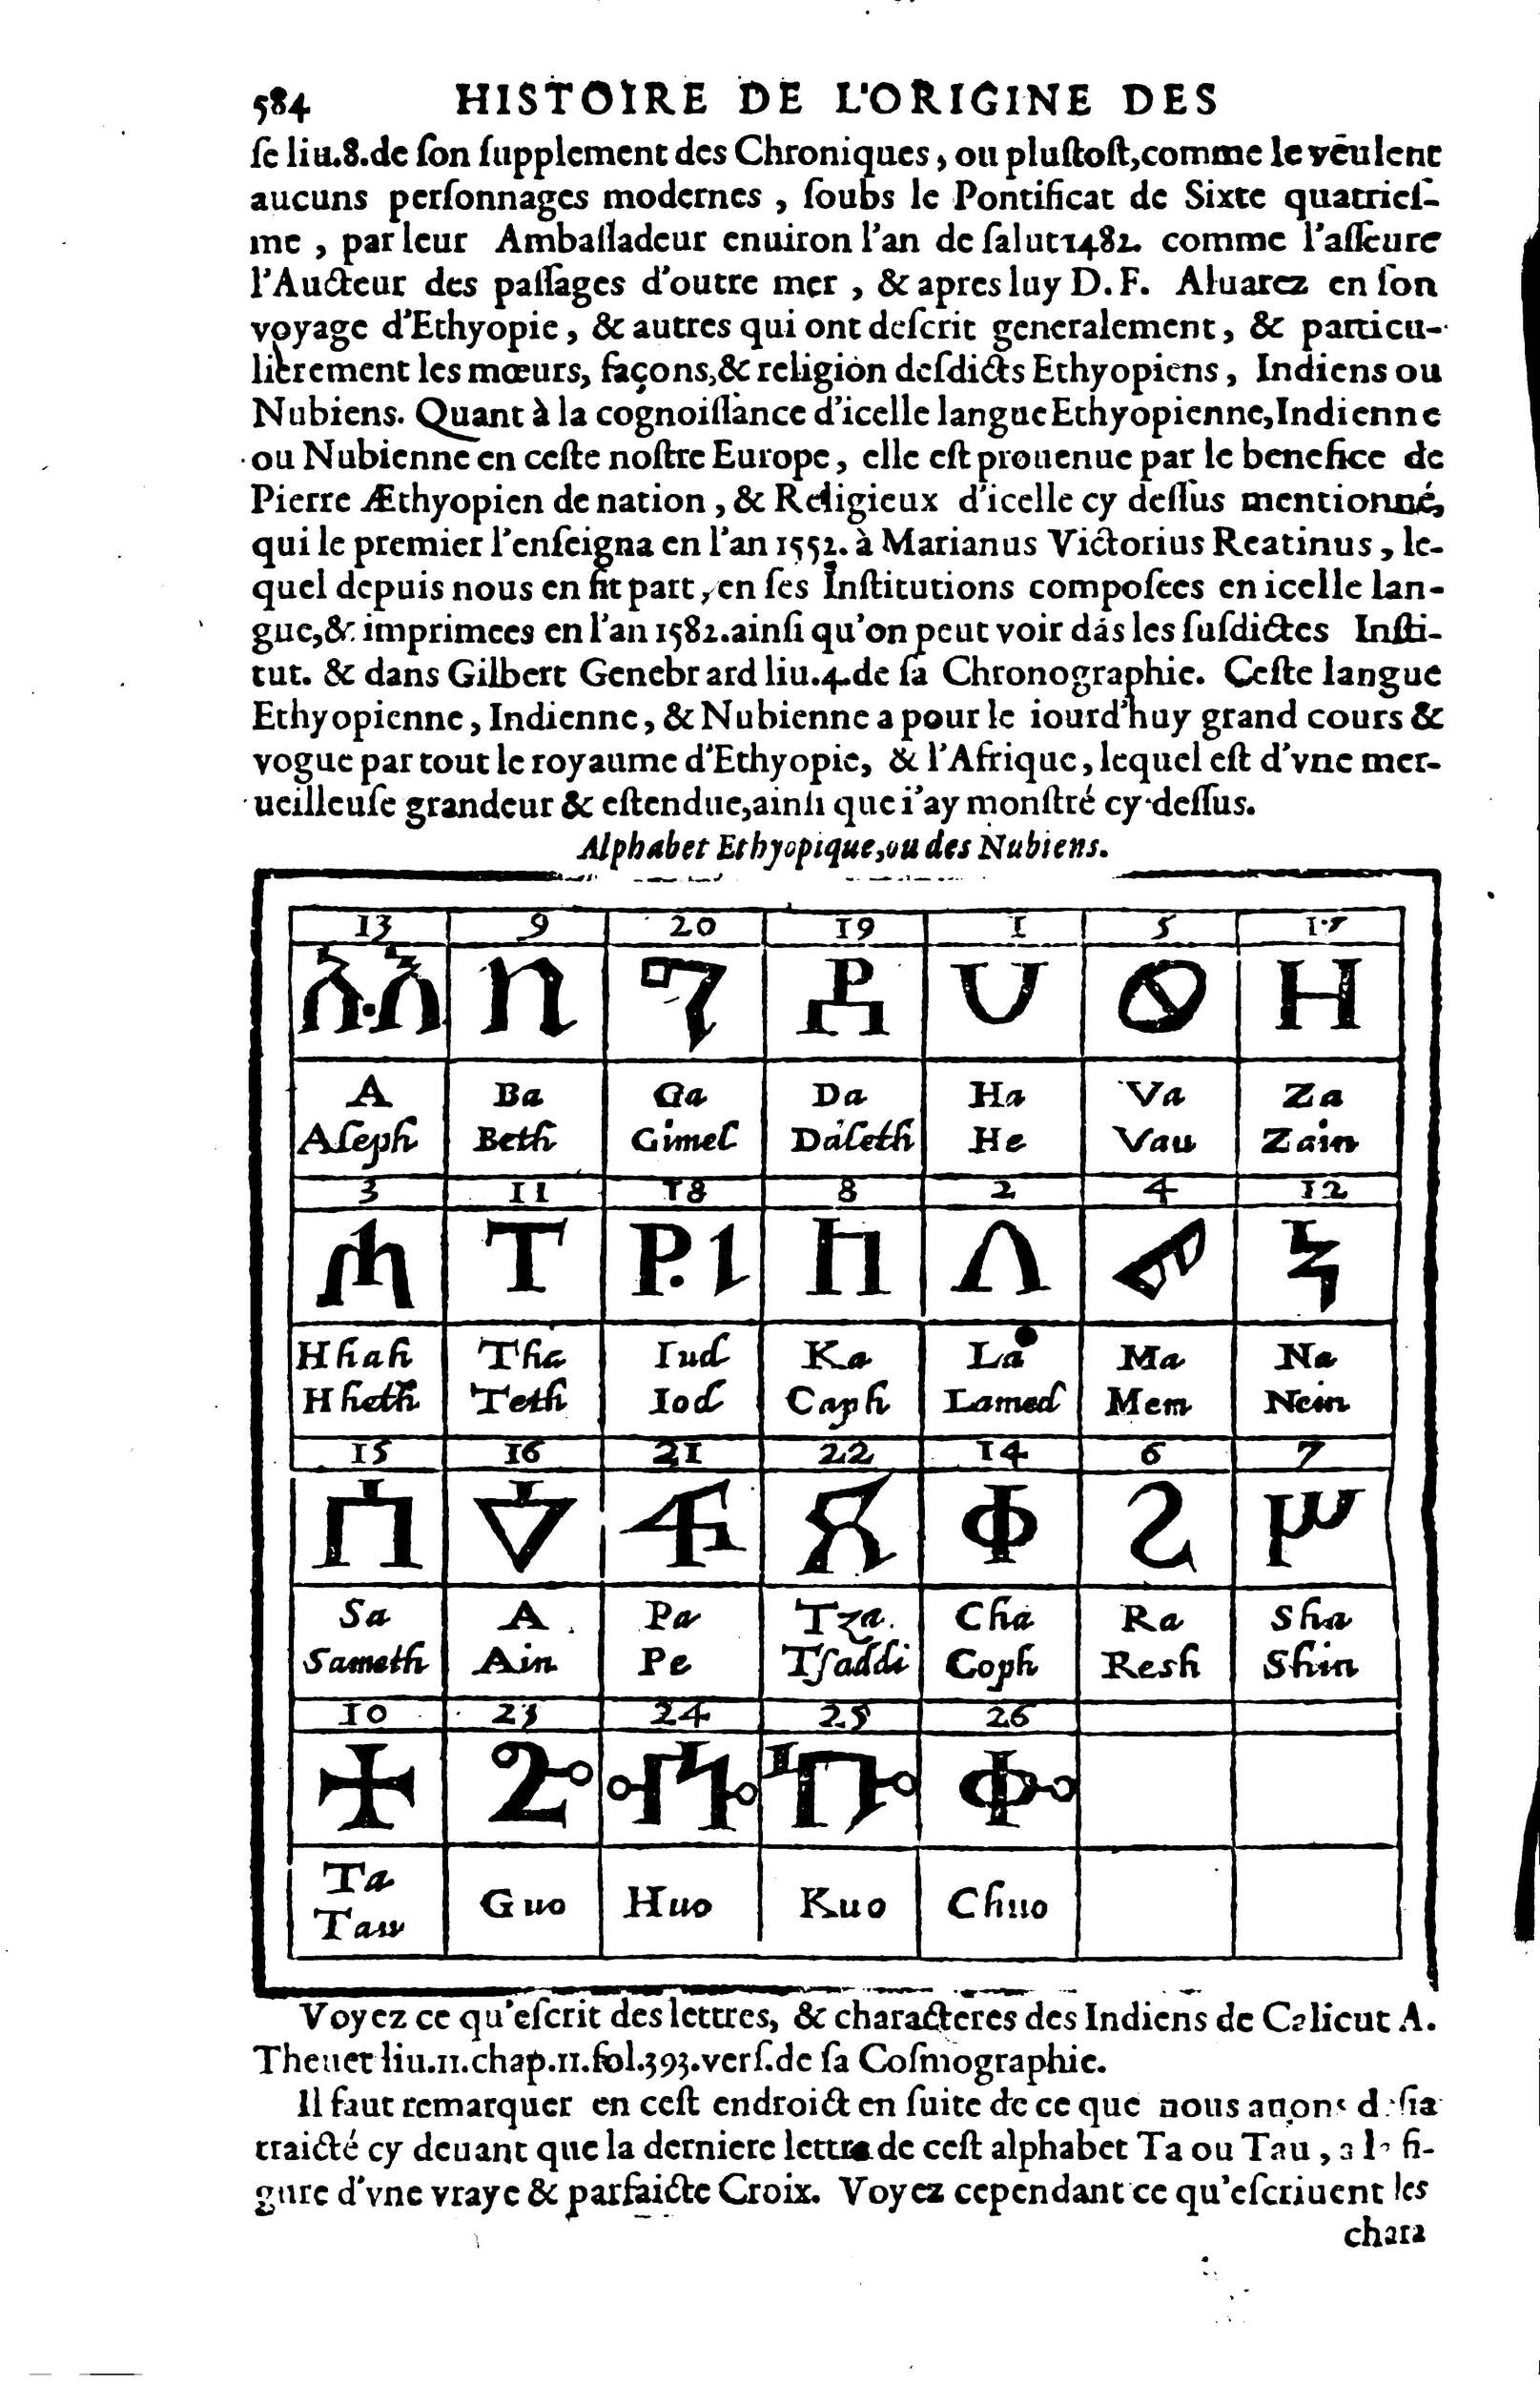 584 HISTOIRE DE L'ORIGINE DES
ſe liu.8.de ſon ſupplement des Chroniques, ou pluſtoſt,comme le veulent
aucuns perſonnages modernes, ſoubs le Pontificat de Sixte quatrieſ-
me, par leur Ambaſſadeur enuiron l'an de ſalut 1482. comme l'aſſeure
l'Aucteur des paſſages d'outre mer, & apres luy D.F. Aluarez en ſon
voyage d'Ethyopie, & autres qui ont deſcrit generalement, & particu-
lierement les mœurs, façons,& religion deſdicts Ethyopiens, Indiens ou
Nubiens. Quant à la cognoiſſance d'icelle langue Ethyopienne,Indienne
ou Nubienne en ceſte noſtre Europe, elle eſt prouenue par le benefice de
Pierre Æthyopien de nation, & Religieux d'icelle cy deſſus mentionné,
qui le premier l'enſeigna en l'an 1552. à Marianus Victorius Reatinus, le-
quel depuis nous en fit part, en ſes Inſtitutions compoſees en icelle lan-
gue,& imprimees en l'an 1582.ainſi qu'on peut voir dás les ſuſdictes Inſti-
tut. & dans Gilbert Genebrard liu.4.de ſa Chronographie. Ceſte langue
Ethyopienne, Indienne, & Nubienne a pour le iourd'huy grand cours &
vogue par tout le royaume d'Ethyopie, & l'Afrique, lequel eſt d'vne mer-
ueilleuſe grandeur & eſtendue,ainſi que i'ay monſtré cy deſſus.
Alphabet Ethyopique,ou des Nubiens.
13 9 20 19 1 5 17
አ.አ በ ግ ደ ሀ ወ ዘ
A Ba Ga Da Ha Va Za
Aleph Beth Gimel Daleth He Vau Zain
3 11 18 8 2 4 12
ሐ ተ የ.ι ከ ለ መ ኀ
Hhah Tha Iud Ka La Ma Na
Hheth Teth Iod Caph Lamed Mem Nein
15 16 21 22 14 6 7
Sa A Pa Tza. Cha Ra Sha
Sameth Ain Pe Tſaddi Coph Resh Shin
10 23 24 25 26
Ta Guo Huo Kuo Chuo
Taw
Voyez ce qu'eſcrit des lettres, & characteres des Indiens de Calicut A.
Theuet liu.11.chap.11.fol.393.verſ.de ſa Coſmographie.
Il faut remarquer en ceſt endroict en ſuite de ce que nous auons deſia
traicté cy deuant que la derniere lettre de ceſt alphabet Ta ou Tau, a la fi-
gure d'vne vraye & parfaicte Croix. Voyez cependant ce qu'eſcriuent les
chara